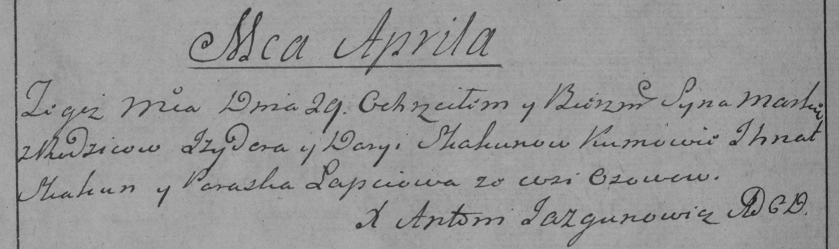 Mca Aprila
Tegoż Mca Dnia 29. Ochrzciłem y Bierzm Syna
z Rodzicow Izydora y Daryi Skakunow Kumowie Ihnat
Skakun y Paraska Łapciowa ze wsi Ozowcow.
X Antoni Jazgunowicz